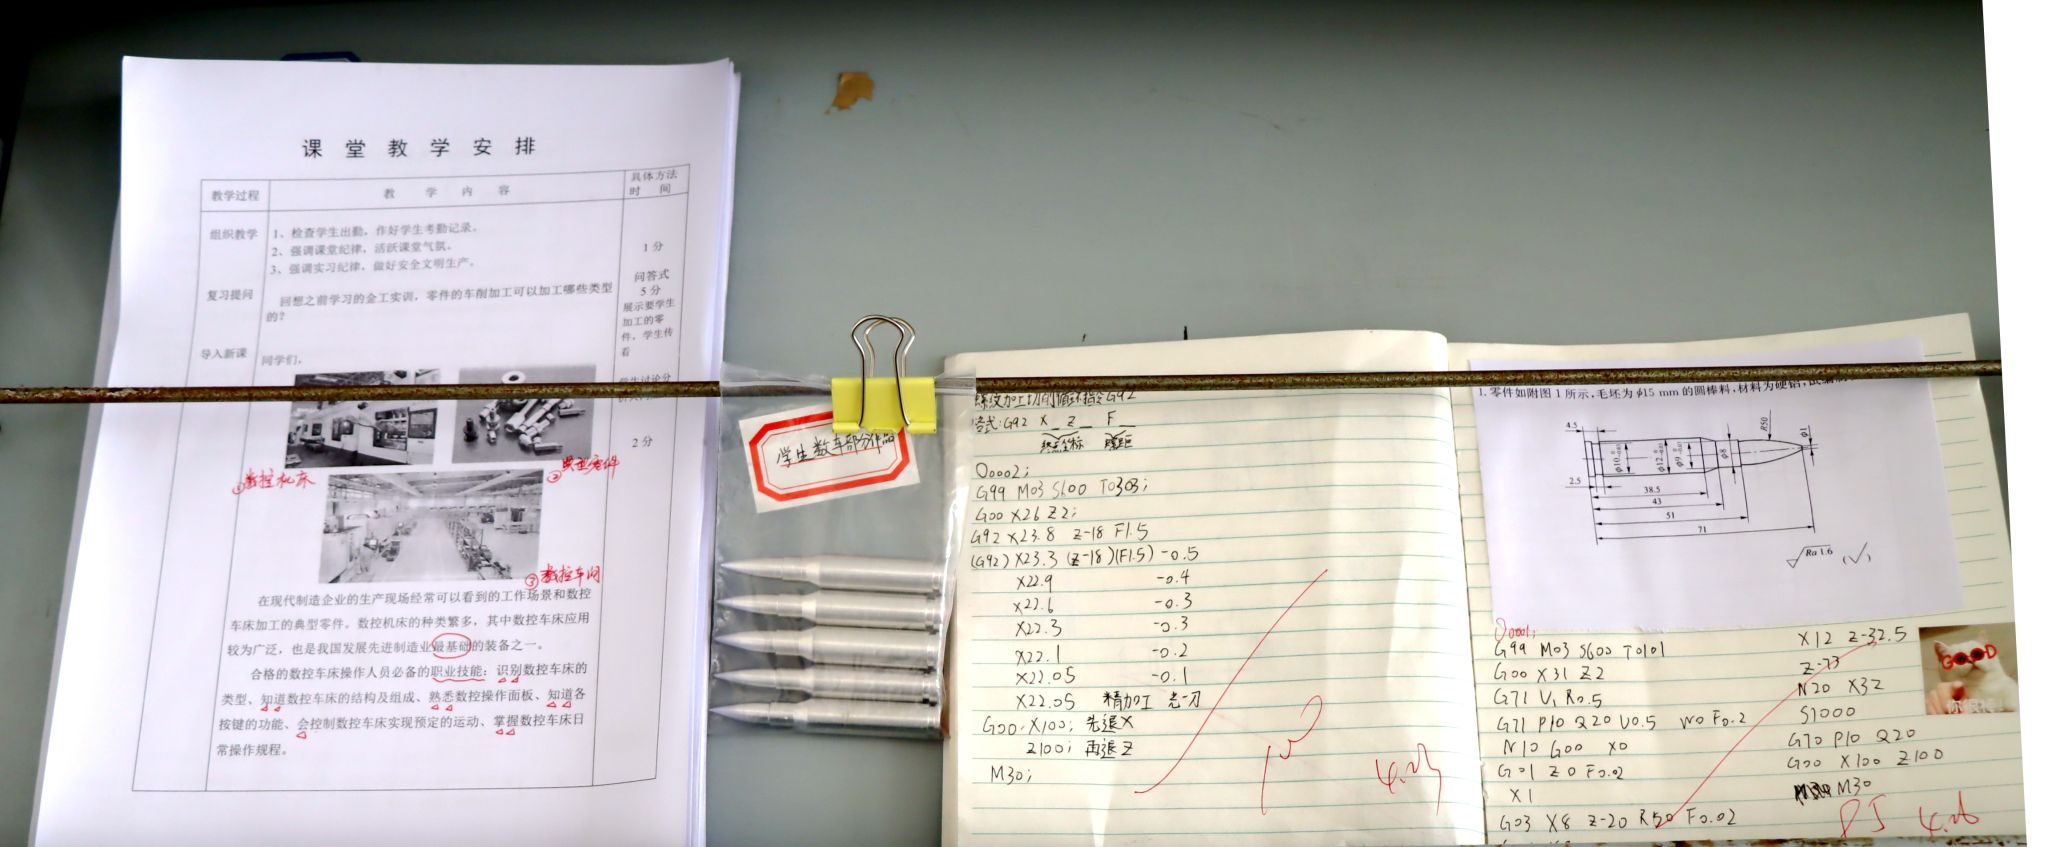 课堂教学安排
教学过程
教学内容
具体方法
时间
组织教学
1、检查学生出勤，作好学生考勤记录。
2、强调课堂纪律，活跃课堂气氛。
3、强调实习纪律，做好安全文明生产。
1分
复习提问
回想之前学习的金工实训，零件的车削加工可以加工哪些类型
的？
问答式
5分
展示要学生
加工的零
件，学生传
看
导入新课
同学们，
学生讨论分
2分
①数控机床
②典型零件
③数控车间
在现代制造企业的生产现场经常可以看到的工作场景和数控
车床加工的典型零件。数控机床的种类繁多，其中数控车床应用
较为广泛，也是我国发展先进制造业最基础的装备之一。
合格的数控车床操作人员必备的职业技能：识别数控车床的
类型、知道数控车床的结构及组成、熟悉数控操作面板、知道各
按键的功能、会控制数控车床实现预定的运动、掌握数控车床日
常操作规程。
学生数车部分作品
螺纹加工切削循环指令G92
格式：G92 X_ Z_ F_
终点坐标 螺距
O0002;
G99 M03 S600 T0303;
G00 X26 Z2;
G92 X23.8 Z-18 F1.5
(G92) X23.3 (Z-18)(F1.5) -0.5
X22.9 -0.4
X22.6 -0.3
X22.3 -0.3
X22.1 -0.2
X22.05 -0.1
X22.05 精加工 光一刀
G00 X100; 先退X
Z100; 再退Z
M30;
1.零件如附图1所示，毛坯为φ15 mm的圆棒料，材料为硬铝，
4.5
R50
φ1
φ10
φ12
φ9
φ8
2.5
38.5
43
51
71
Ra 1.6
O0001;
G99 M03 S600 T0101
G00 X31 Z2
G71 U1 R0.5
G71 P10 Q20 U0.5 W0 F0.2
N10 G00 X0
G01 Z0 F0.02
X1
G03 X8 Z-20 R50 F0.02
X12 Z-32.5
Z-73
N20 X32
S1000
G70 P10 Q20
G00 X100 Z100
M30
GOOD
你很棒